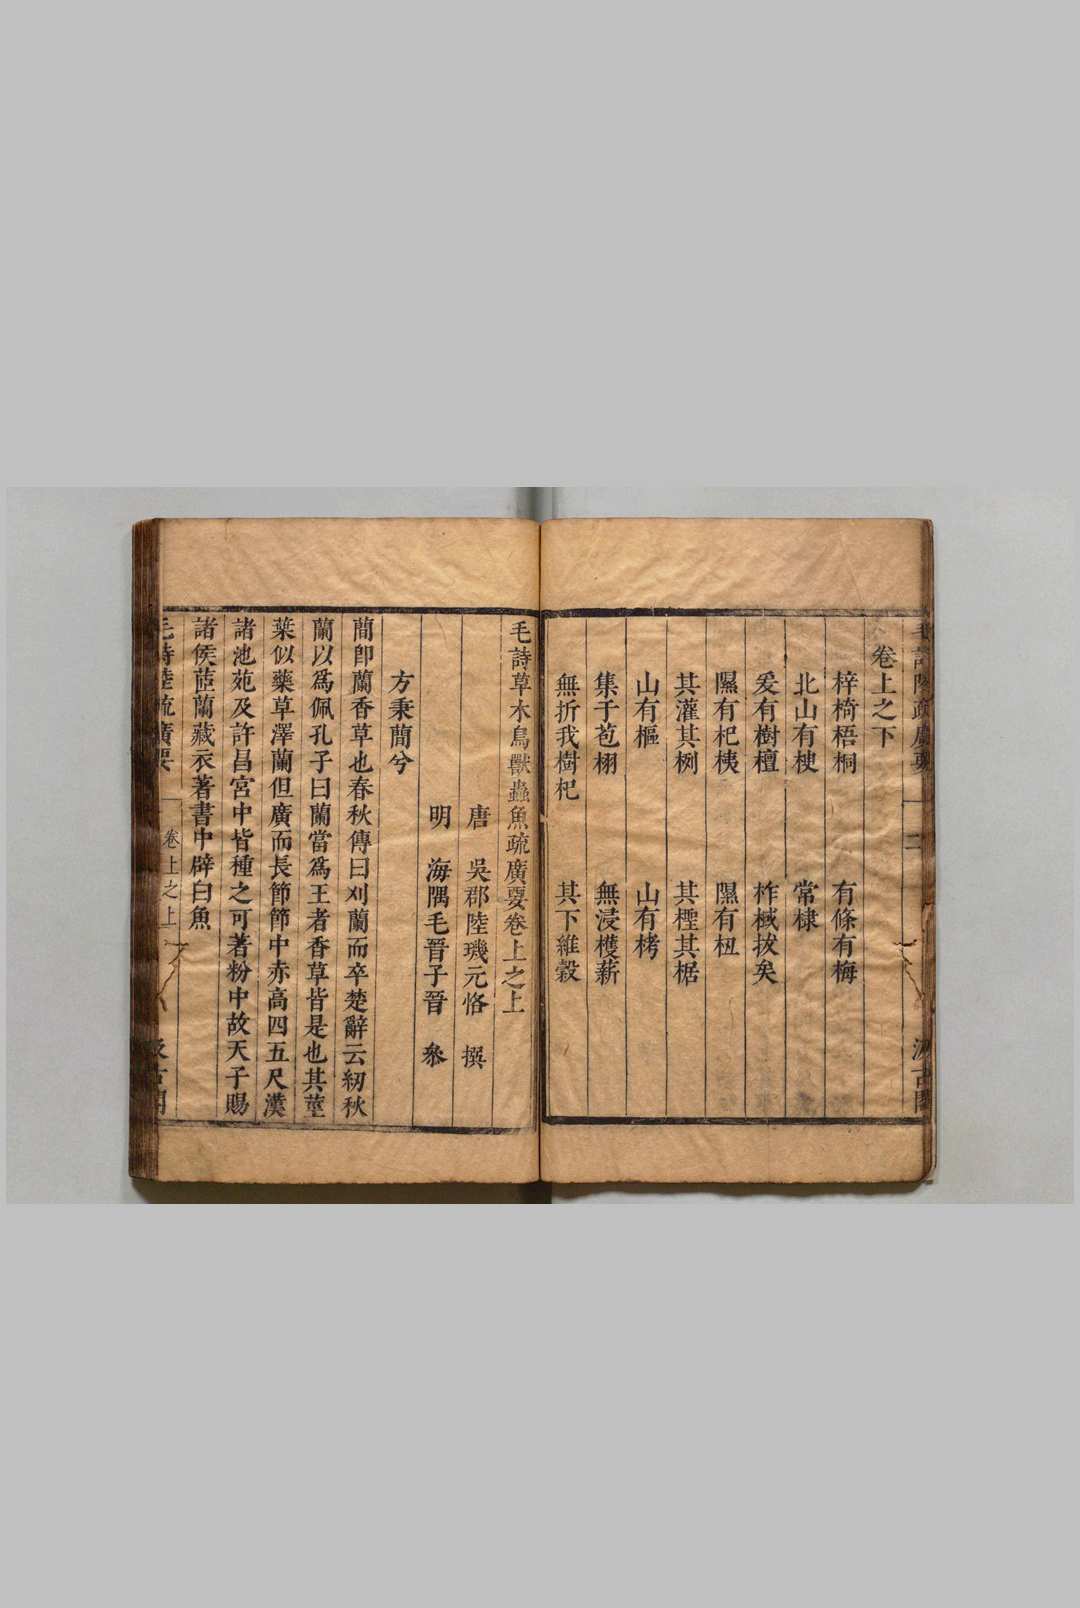 毛詩陸疏廣要
二
汲古閣
卷上之下
梓椅梧桐 有條有梅
北山有楰 常棣
爰有樹檀 柞棫拔矣
隰有杞桋 隰有杻
其灌其栵 其檉其椐
山有樞 山有栲
集于苞栩 無浸穫薪
無折我樹杞 其下維穀
毛詩草木鳥獸蟲魚疏廣要卷上之上
唐 吳郡陸璣元恪 撰
明 海隅毛晉子晉 叅
方秉蕑兮
蕑卽蘭香草也春秋傳曰刈蘭而卒楚辭云紉秋
蘭以爲佩孔子曰蘭當爲王者香草皆是也其莖
葉似藥草澤蘭但廣而長節節中赤高四五尺漢
諸池苑及許昌宮中皆種之可著粉中故天子賜
諸侯茝蘭藏衣著書中辟白魚
毛詩陸疏廣要
卷上之上
汲古閣